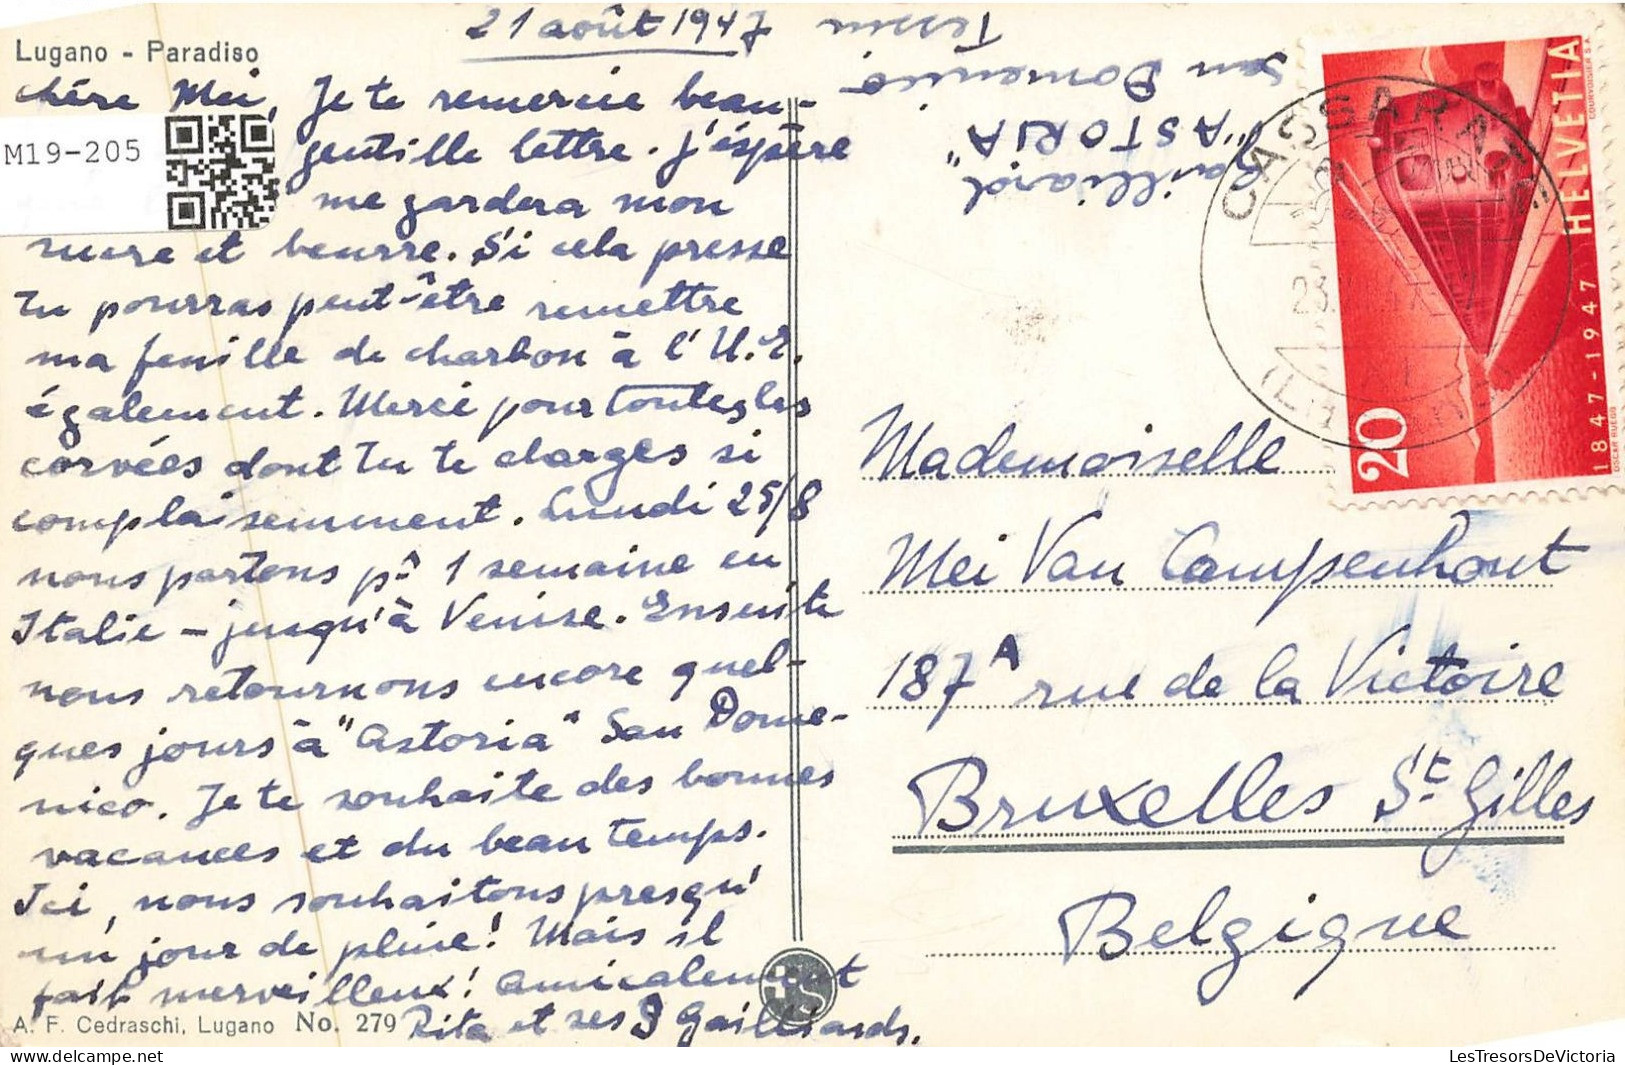 21 août 1947
Lugano - Paradiso
chère Mei, Je te remercie beau-
gentille lettre. J'éspère
me gardera mon
sucre et beurre. Si cela presse
Tu pourras peut-être remettre
ma feuille de charbon à l'U.E.
également. Merci pour toutes les
corvées dont Tu te charges si
complaisemment. Lundi 25/8
nous partons pr 1 semaine en
Italie - jusqu'à Venise. Ensuite
nous retournons encore quel-
ques jours à "Astoria" San Dome-
nico. Je te souhaite des bonnes
vacances et du beau temps.
Ici, nous souhaitons presqu'
un jour de pluie! Mais il
fait merveilleux! Amicalement
Rita et ses 3 Gailliards.
A. F. Cedraschi, Lugano No. 279
M19-205
JS
Gailliard
"ASTORIA"
San Domenico
Tessin
HELVETIA
1847-1947
20
COURVOISIER S.A.
OSCAR RUEGG
CASSARATE
Mademoiselle
Mei Van Campenhout
187A rue de la Victoire
Bruxelles St. Gilles
Belgique
LesTresorsDeVictoria